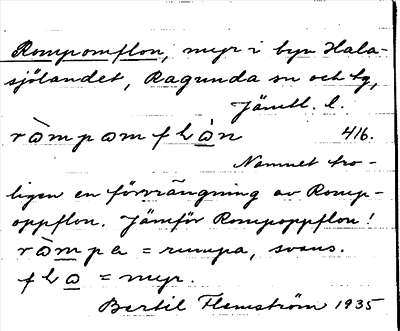 Rompomflon, myr i byn Hala-
sjölandet, Ragunda sn och tg,
Jämtl. l.
ròmpomflòn 416.
Namnet tro-
ligen en förvrängning av Romp-
oppflon. Jämför Rompoppflon!
ròmpa = rumpa, svans.
flo = myr.
Bertil Flemström 1935